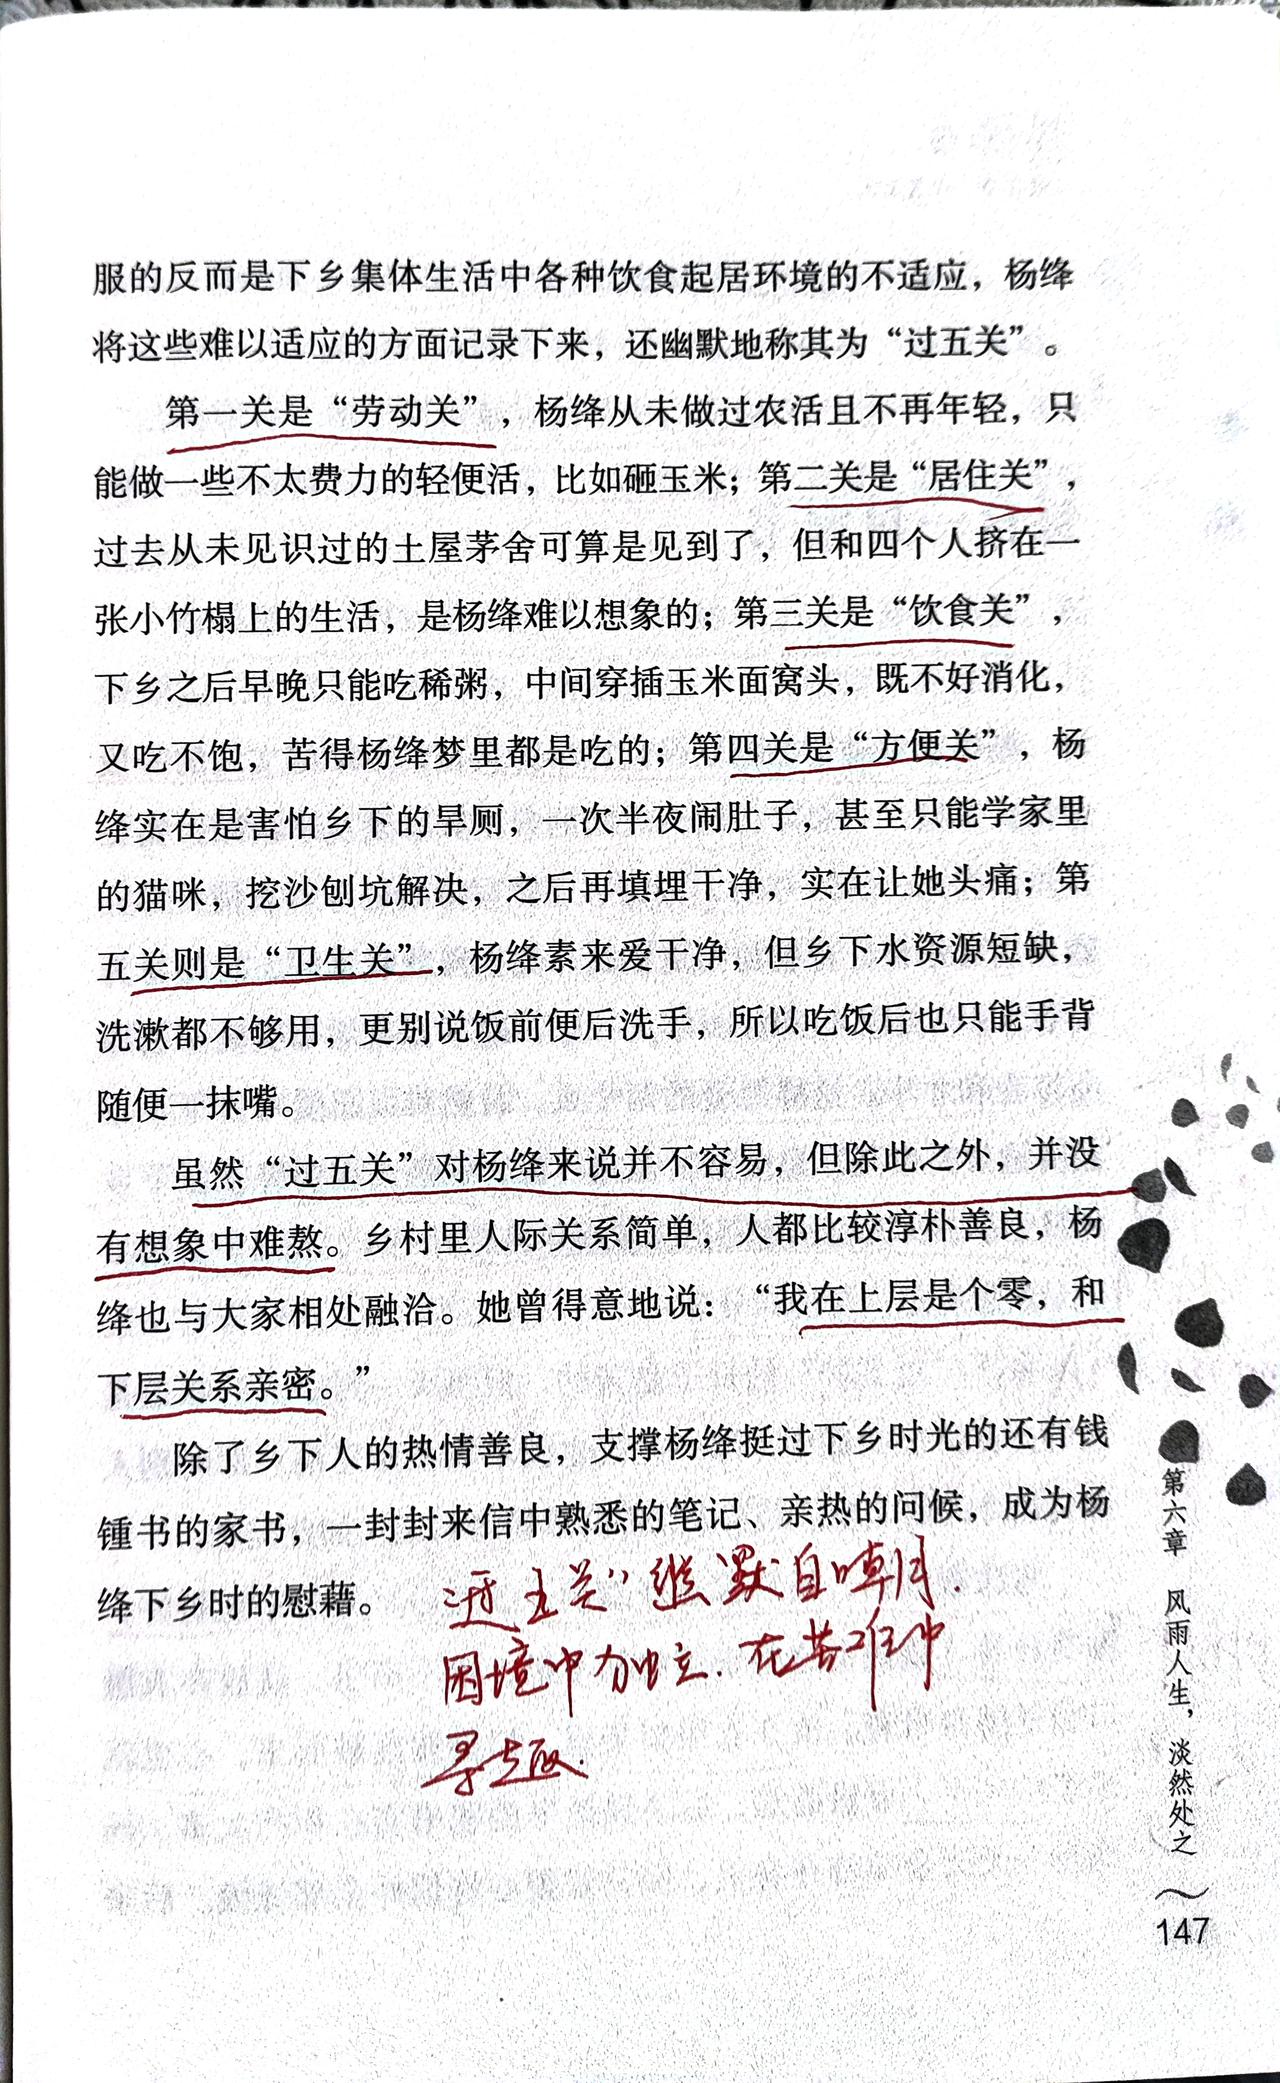 服的反而是下乡集体生活中各种饮食起居环境的不适应，杨绛
将这些难以适应的方面记录下来，还幽默地称其为“过五关”。
第一关是“劳动关”，杨绛从未做过农活且不再年轻，只
能做一些不太费力的轻便活，比如砸玉米；第二关是“居住关”，
过去从未见识过的土屋茅舍可算是见到了，但和四个人挤在一
张小竹榻上的生活，是杨绛难以想象的；第三关是“饮食关”，
下乡之后早晚只能吃稀粥，中间穿插玉米面窝头，既不好消化，
又吃不饱，苦得杨绛梦里都是吃的；第四关是“方便关”，杨
绛实在是害怕乡下的旱厕，一次半夜闹肚子，甚至只能学家里
的猫咪，挖沙刨坑解决，之后再填埋干净，实在让她头痛；第
五关则是“卫生关”，杨绛素来爱干净，但乡下水资源短缺，
洗漱都不够用，更别说饭前便后洗手，所以吃饭后也只能手背
随便一抹嘴。
虽然“过五关”对杨绛来说并不容易，但除此之外，并没
有想象中难熬。乡村里人际关系简单，人都比较淳朴善良，杨
绛也与大家相处融洽。她曾得意地说：“我在上层是个零，和
下层关系亲密。”
除了乡下人的热情善良，支撑杨绛挺过下乡时光的还有钱
锺书的家书，一封封来信中熟悉的笔记、亲热的问候，成为杨
绛下乡时的慰藉。
五关” 默自嘲
困境中 在苦难中
寻趣.
第六章 风雨人生，淡然处之
147